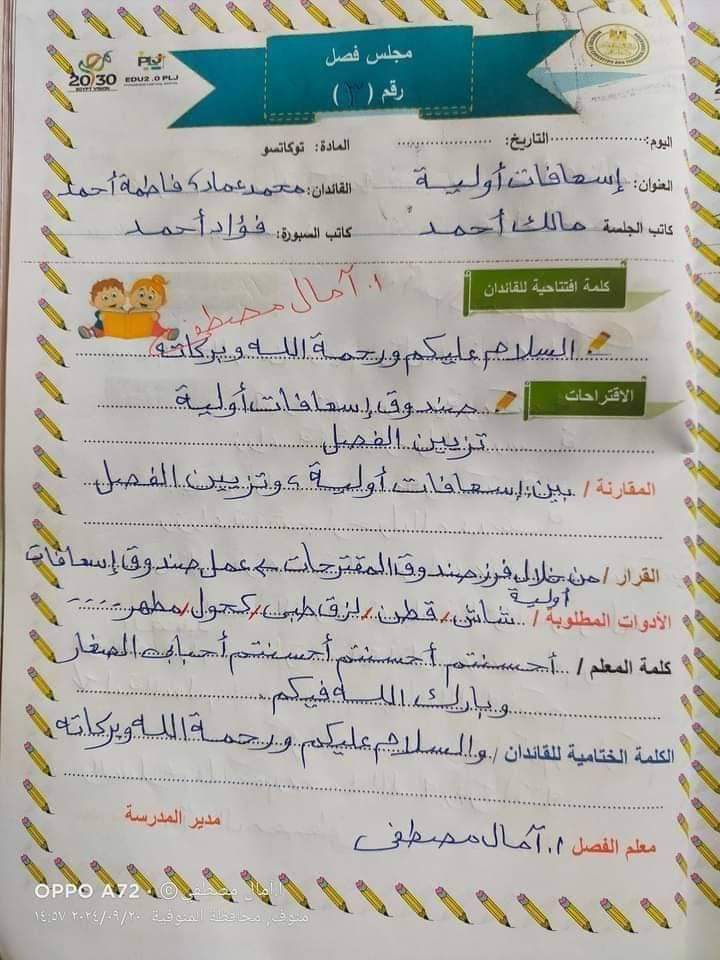 2030
EGYPT VISION
EDU2.0 PLJ
مجلس فصل
رقم (٣)
اليوم: .................... التاريخ: .................... المادة: توكاتسو
العنوان: إسعافات أولية القائدان: محمد عماد، فاطمة أحمد
كاتب الجلسة مالك أحمد كاتب السبورة: فؤاد أحمد
كلمة افتتاحية للقائدان
أ. آمال مصطفى
السلام عليكم ورحمة الله وبركاته
الاقتراحات
صندوق إسعافات أولية
تزيين الفصل
المقارنة / بين إسعافات أولية، وتزيين الفصل
القرار / من خلال فرز صندوق المقترحات ← عمل صندوق إسعافات
أولية
الأدوات المطلوبة / شاش / قطن / لزق طبي / كحول / مطهر ----
كلمة المعلم / أحسنتم أحسنتم أحسنتم أحبابي الصغار
وبارك الله فيكم
الكلمة الختامية للقائدان / والسلام عليكم ورحمة الله وبركاته
مدير المدرسة
معلم الفصل أ. آمال مصطفى
OPPO A72 · © أ/أمال مصطفى
منوف, محافظة المنوفية ٢٠٢٤/٠٩/٢٠ ١٤:٥٧